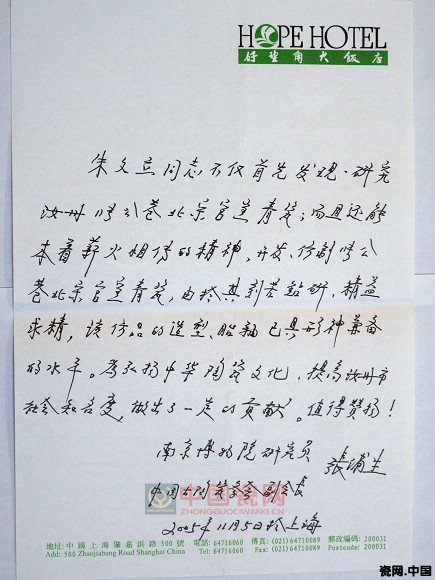 HOPE HOTEL
好望角大飯店
朱文立同志不仅首先发现、研究
汝州张公巷北宋官窑青瓷;而且还能
本着薪火相传的精神,开发、仿制张公
巷北宋官窑青瓷,由於其刻苦鉆研,精益
求精,该仿品的造型、胎釉已具形神兼备
的水平。为弘扬中华陶瓷文化,提高汝州市
社会知名度,做出了一定的贡献。值得赞扬!
南京博物院研究员
張浦生
中国古陶瓷学会副会长
中国瓷网
ZHONGGUOCIWANG.COM
2005年11月5日於上海
地址:中國上海肇嘉浜路500號 電話:64716060 傳真:(021)64710089 郵政編碼:200031
Add: 500 Zhaojiabang Road Shanghai China Tel: 64716060 Fax: (021)64710089 Postcode: 200031
瓷网.中国